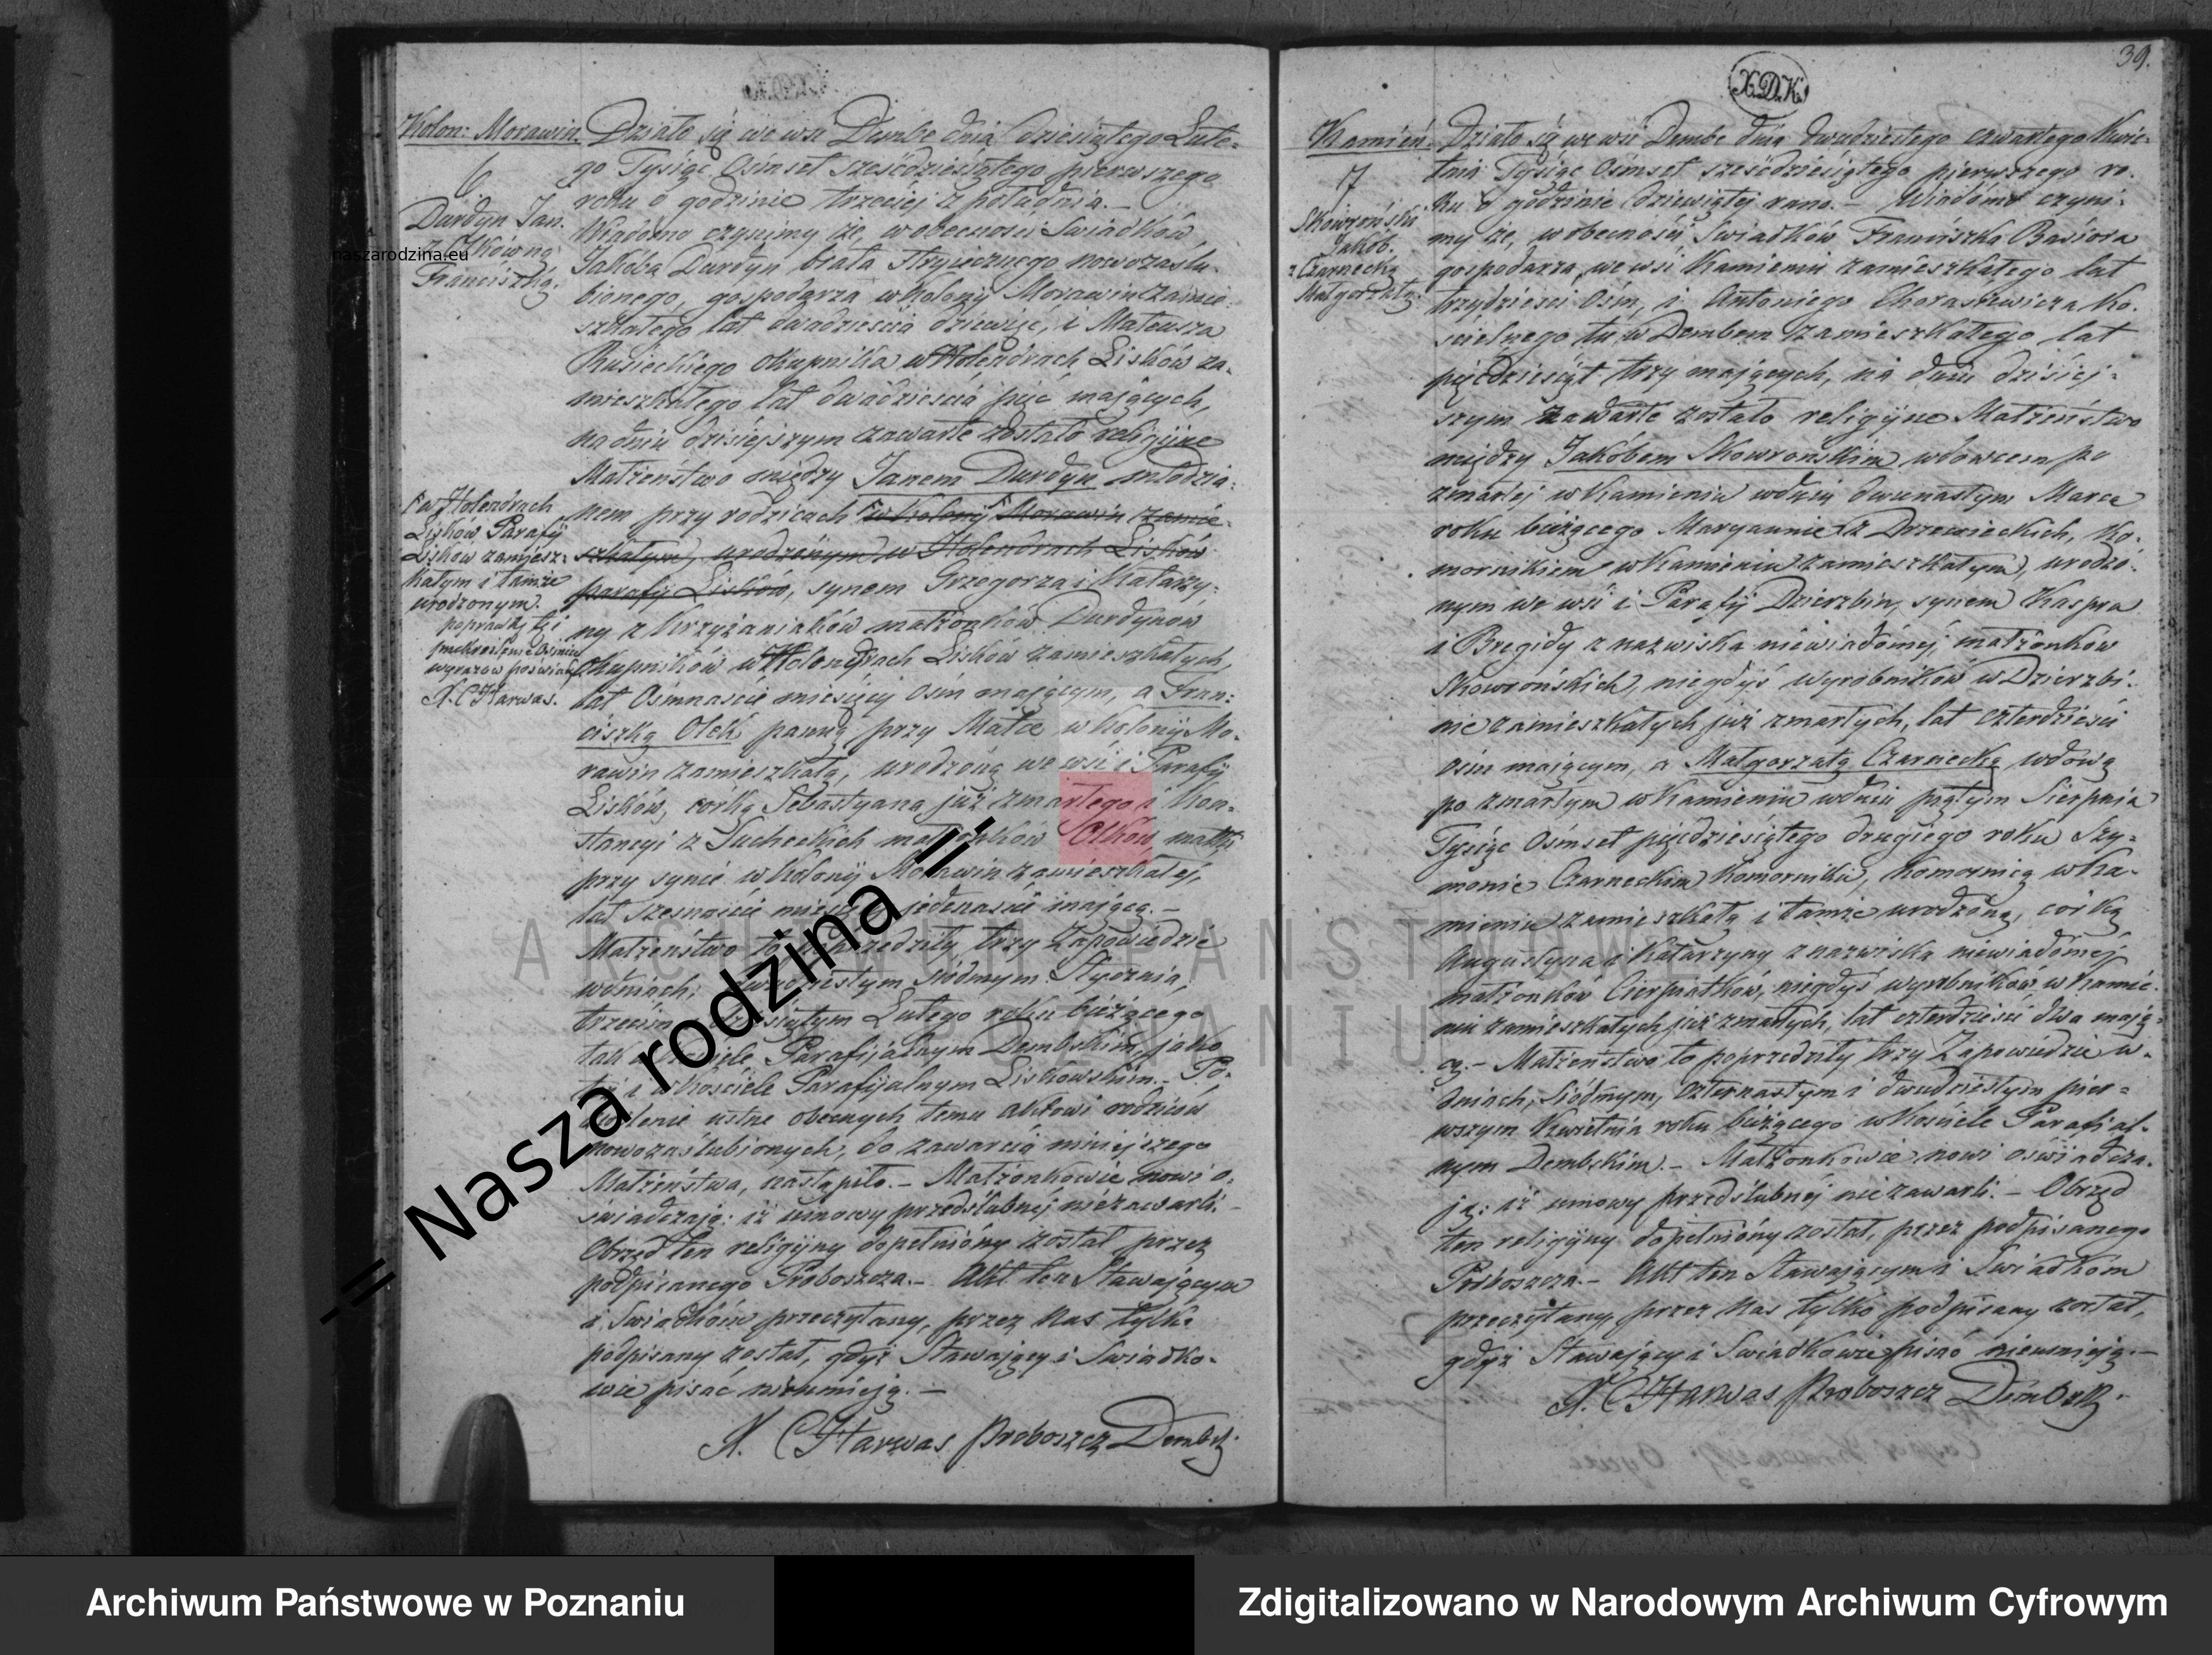 Kolon: Morawin.
6
Durdyn Jan.
z Olkówną
Franciszką.
Działo się we wsi Dembe dnia dziesiątego Lute-
go Tysiąc Osimset sześćdziesiątego pierwszego
roku o godzinie trzeciej z południa. -
Wiadomo czynimy że, w obecności Swiadków,
Jakóba Durdyn brata stryiecznego nowozaślu-
bionego, gospodarza w Kolonij Morawin zamie-
szkałego lat dwadzieścia dziewięć, i Mateusza
Rusieckiego Okupnika w Holendrach Lisków za-
mieszkałego lat dwadzieścia pięć mających,
na dniu dzisiejszym zawarte zostało religijne
Małżenstwo między Janem Durdyn młodzia-
nem przy rodzicach w Kolonij Morawin zamie-
szkałym, urodzonym w Holendrach Lisków
parafij Lisków, synem Grzegorza i Katarzy-
ny z Krzyżaniaków małżonków Durdynów
Okupników w Holendrach Lisków zamieszkałych,
lat Osimnaście miesięcy Osim mającym, a Fran-
ciszką Olek panną przy Matce w Kolonij Mo-
rawin zamieszkałą, urodzoną we wsi i Parafij
Lisków, córką Sebastyana już zmarłego i Kon-
stancyi z Sucheckich małżonków Olków matki
przy synie w Kolonij Morawin zamieszkałej,
lat szesnaście miesięcy jedenaście mającą. -
Małżeństwo to poprzedziły trzy Zapowiedzie
w dniach: dwudziestym siódmym Stycznia,
trzecim i dziesiątym Lutego roku bieżącego
tak w Kościele Parafijalnym Dembskim, jako
też i w Kościele Parafijalnym Liskowskim. - Po-
zwolenie ustne obecnych temu aktowi rodziców
nowozaślubionych, do zawarcia niniejszego
Małżeństwa, nastąpiło. - Małżonkowie nowi o-
świadczają: iż umowy przedślubnej niezawarli. -
Obrzęd ten religijny dopełniony został przez
podpisanego Proboszcza. - Akt ten Stawającym
i Swiadkom przeczytany, przez Nas tylko
podpisany został, gdyż Stawający i Swiadko-
wie pisać nieumieją. -
X. C Harwas Proboszcz Dembski
w Holendrach
Lisków, Parafij
Lisków zamiesz-
kałym i tamże
urodzonym.
poprawkę tę i
przekreślenie Osimiu
wyrazów poświad
X. C Harwas.
X.D.K.
39.
Kamień.
7
Skowroński
Jakób.
z Czarnecką
Małgorzatą.
Działo się we wsi Dembe dnia dwudziestego czwartego Kwie-
tnia Tysiąc Osimset sześćdziesiątego pierwszego ro-
ku o godzinie dziewiątej rano. - Wiadomo czyni-
my że, w obecności Swiadków Franciszka Basiora
gospodarza we wsi Kamieniu zamieszkałego lat
trzydzieści Osim, i Antoniego Choraszewicza Ko-
ścielnego tu w Dembem zamieszkałego lat
pięćdziesiąt trzy mających, na dniu dzisiej-
szym zawarte zostało religijne Małżeństwo
między Jakóbem Skowrońskim, wdowcem po
zmarłej w Kamieniu w dniu dwunastym Marca
roku bieżącego Maryannie z Drzewieckich, Ko-
mornikiem w Kamieniu zamieszkałym, urodzo-
nym we wsi i Parafij Dzierzbin, synem Kaspra
i Bregidy z nazwiska niewiadomej małżonków
Skowrońskich, niegdyś wyrobników w Dzierzbi-
nie zamieszkałych już zmarłych, lat czterdzieści
osim mającym, a Małgorzatą Czarnecką, wdową
po zmarłym w Kamieniu w dniu piątym Sierpnia
Tysiąc Osimset pięćdziesiątego drugiego roku Szy-
monie Czarneckim Komorniku, Komornicą w Ka-
mieniu zamieszkałą i tamże urodzoną, córką
Augustyna i Katarzyny z nazwiska niewiadomej
małżonków Cierpiatków, niegdyś wyrobników w Kamie-
niu zamieszkałych już zmarłych, lat czterdzieści dwa mają-
cą. - Małżeństwo to poprzedziły trzy Zapowiedzie w
dniach, siódmym, czternastym i dwudziestym pier-
wszym Kwietnia roku bieżącego w Kościele Parafial-
nym Dembskim. - Małżonkowie nowi oświadcza-
ją: iż umowy przedślubnej niezawarli. - Obrzęd
ten religijny dopełniony został, przez podpisanego
Proboszcza. - Akt ten Stawającym i Swiadkom
przeczytany, przez Nas tylko podpisany został,
gdyż Stawający i Swiadkowie pisać nieumieją. -
X. C Harwas Proboszcz Dembski.
naszarodzina.eu
-= Nasza rodzina =-
ARCHIWUM PAŃSTWOWE
W POZNANIU
Archiwum Państwowe w Poznaniu
Zdigitalizowano w Narodowym Archiwum Cyfrowym